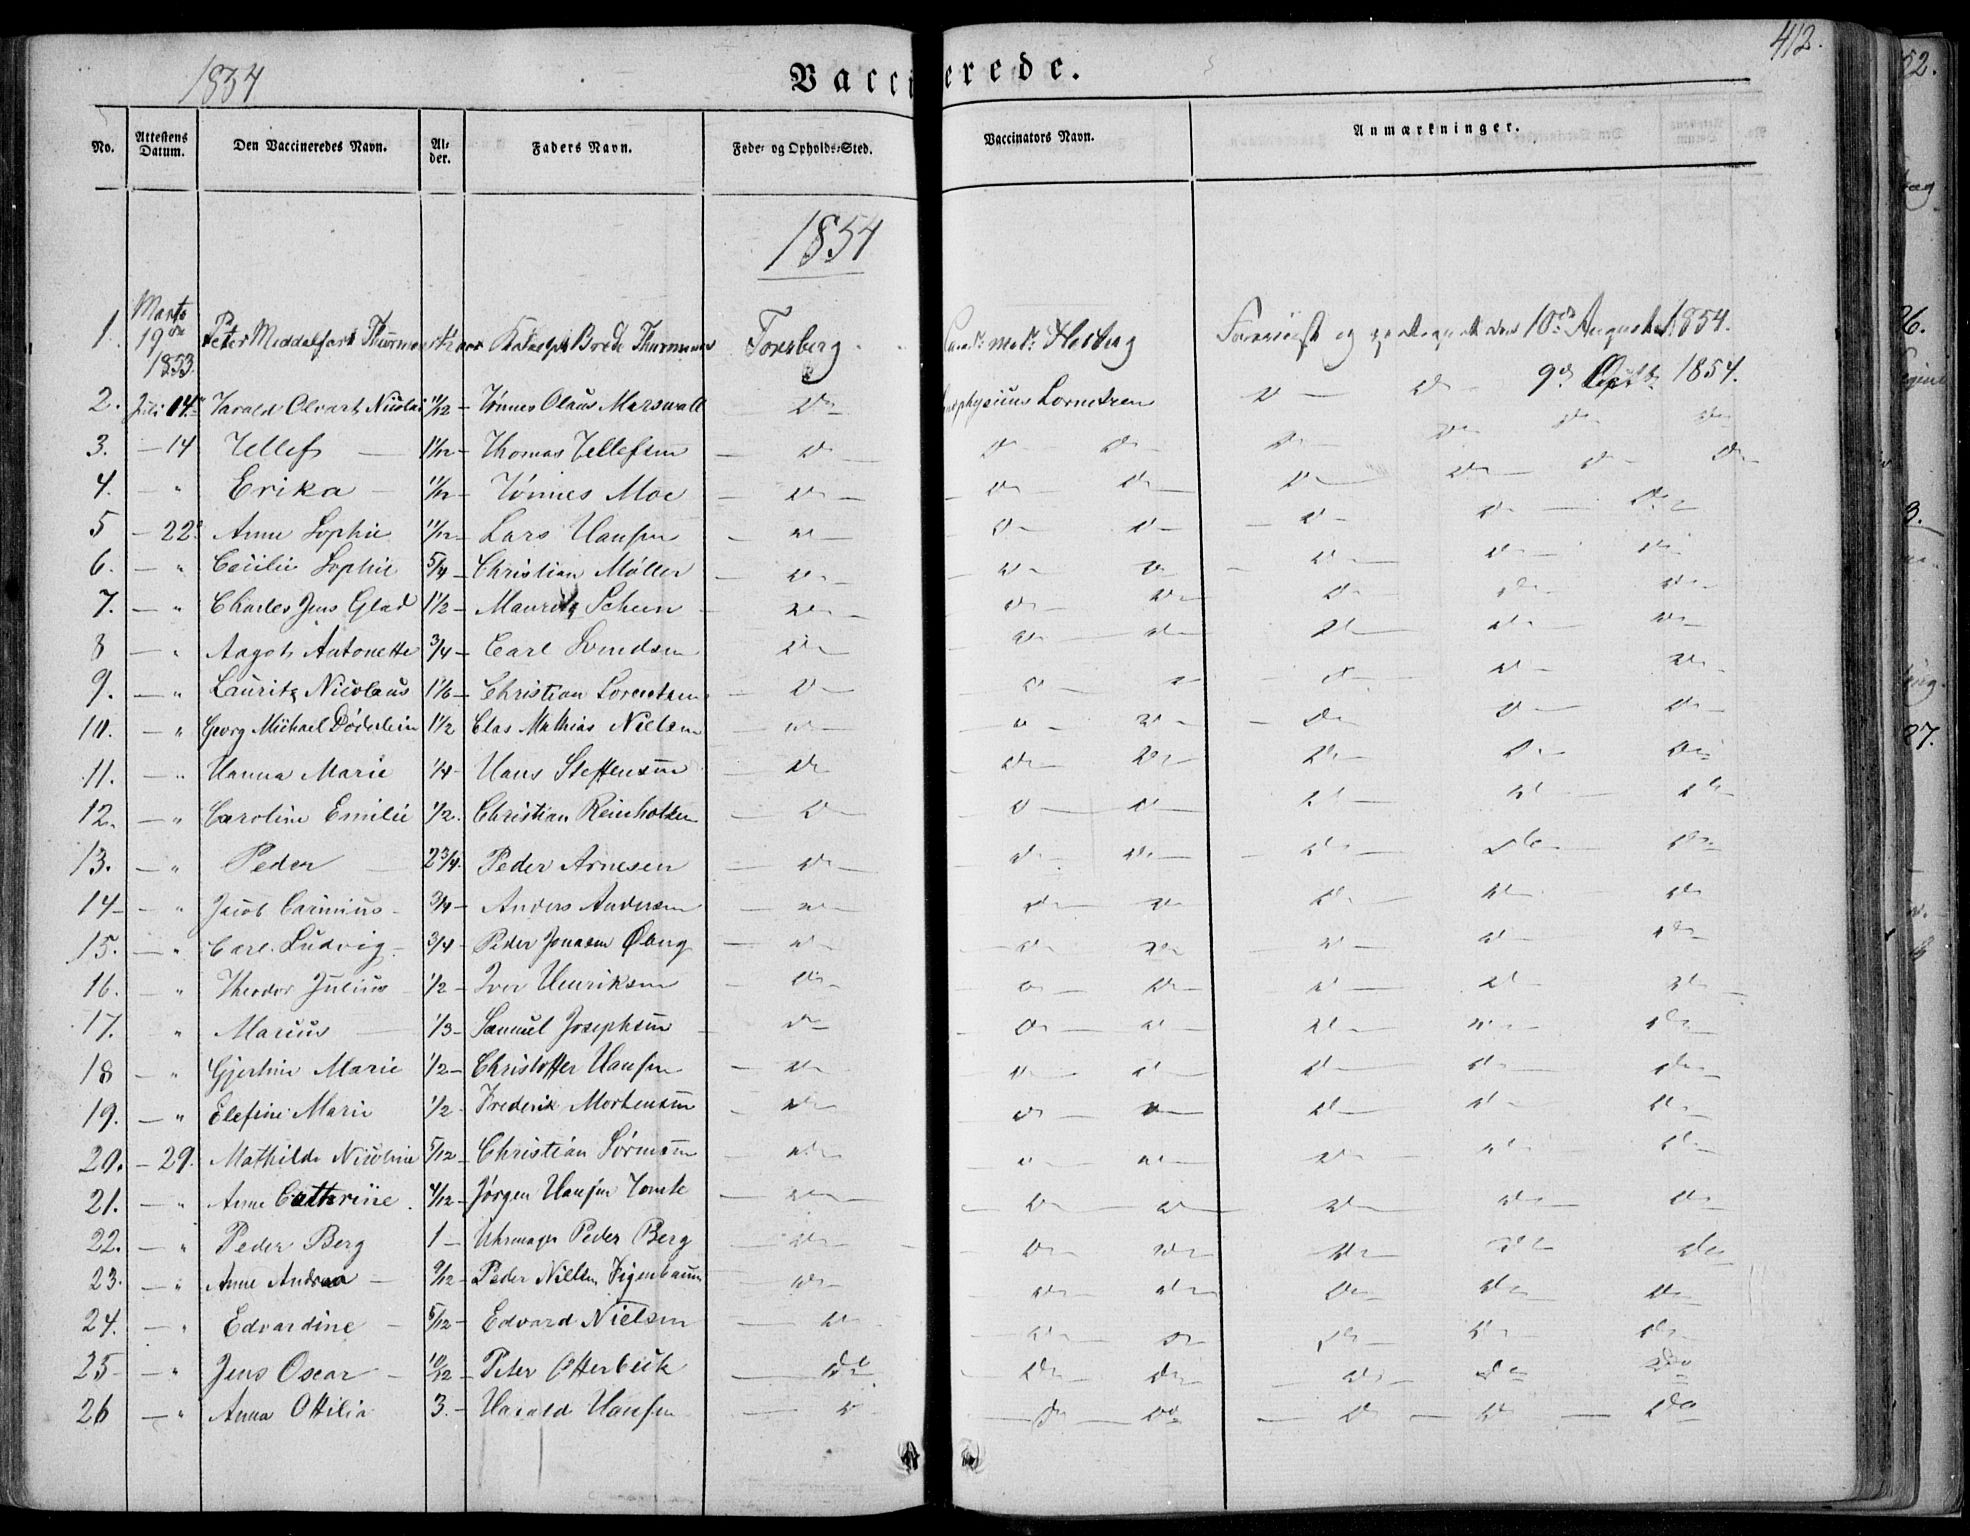 412.
1854
Vaccinerede.
No. Attestens Datum. Den Vaccineredes Navn. Alder. Faders Navn. Føde- og Opholds-Sted. Vaccinators Navn. Anmærkninger.
1854
1. Marts 19de 1853. Peter Meddelfart Thurmann Brede Thurmann Tønsberg Cand. med. Heiberg og den 10de August 1854.
2. Juli 14de Harald Olvart Nicolai 11/12 Tønnes Olaus Marswall Do Lorentzen Do Do 9de Septbr 1854.
3. — 14 Tellef — 11/12 — Thomas Tellefsen — Do — Do Do Do Do Do Do
4. — " Erika — 11/12 — Tønnes Moe — Do — Do Do Do Do Do Do
5 — 22 Anne Sophie 11/12 — Lars Hansen — Do — Do Do Do Do Do
6. — " Cæcilie Sophie 5/4 — Christian Møller — Do — Do Do Do Do Do
7. — " Charles Jens Glad 1 1/2 — Mauritz Scheen — Do — Do Do Do Do Do
8 — " Aagot Antonette 3/4 — Carl Svendsen Do — Do Do Do Do Do
9. — " Lauritz Nicolaus 1 1/6 — Christian Lorentzen — Do — Do Do Do Do Do
10. — " Georg Michael Døderlein 1 1/2 Clas Mathias Nielsen — Do — Do Do Do Do Do
11. — " Hanna Marie 1/4 — Hans Steffensen — Do Do Do Do Do Do
12. — " Caroline Emilie 1/2. Christian Reinholtsen — Do Do Do Do Do Do
13. — " Peder — 2 3/4. Peder Arnesen — Do — Do Do Do Do Do
14 — " Jacob Carinius — 3/4 — Anders Andersen — Do — Do Do Do Do Do
15. — " Carl Ludvig 3/4 — Peder Jonasen Øberg — Do — Do Do Do Do Do
16. — " Theodor Julius 1/2 — Iver Henriksen — Do Do Do Do Do Do
17. " Marius — 1/3 — Samuel Josephsen — Do Do Do Do Do Do
18 — " Gjertine Marie 1/2 — Christoffer Hansen — Do Do Do Do Do Do
19. — " Elefine Marie 1/2 Frederik Mortensen — Do Do Do Do Do Do
20. — 29. Mathilde Nicoline 5/12 — Christian Sørensen — Do Do Do Do Do Do
21. — " Anne Cathrine. 4/12 — Jørgen Hansen — Do — Do Do Do Do Do
22. — " Peder Berg 1 — Uhrmager Peder Berg — Do — Do Do Do Do Do
23. — " Anne Andrea — 9/12 — Peder Nielsen Figenbaum — Do Do Do Do Do Do
24. — " Edvardine — 5/12 — Edvard Nielsen — Do — Do Do Do Do Do
25 — " Jens Oscar — 10/12 — Peter Otterbeck — Do — Do Do Do Do Do
26 — " Anna Ottilia 3. — Harald Hansen — Do — Do Do — Do — Do — Do